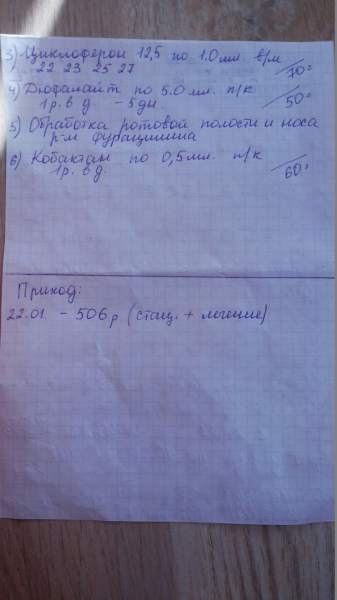 3) Циклоферон 12,5 по 1.0 мл. в/м
22 23 25 27 70=
4) Дюфалайт по 5.0 мл. п/к
1 р. в д. - 5 дн. 50=
5) Обработка ротовой полости и носа
р-м фурацилина
6) Кобактан по 0,5 мл. п/к
1 р. в д. 60=
Приход:
22.01. - 506 р (стац. + лечение)